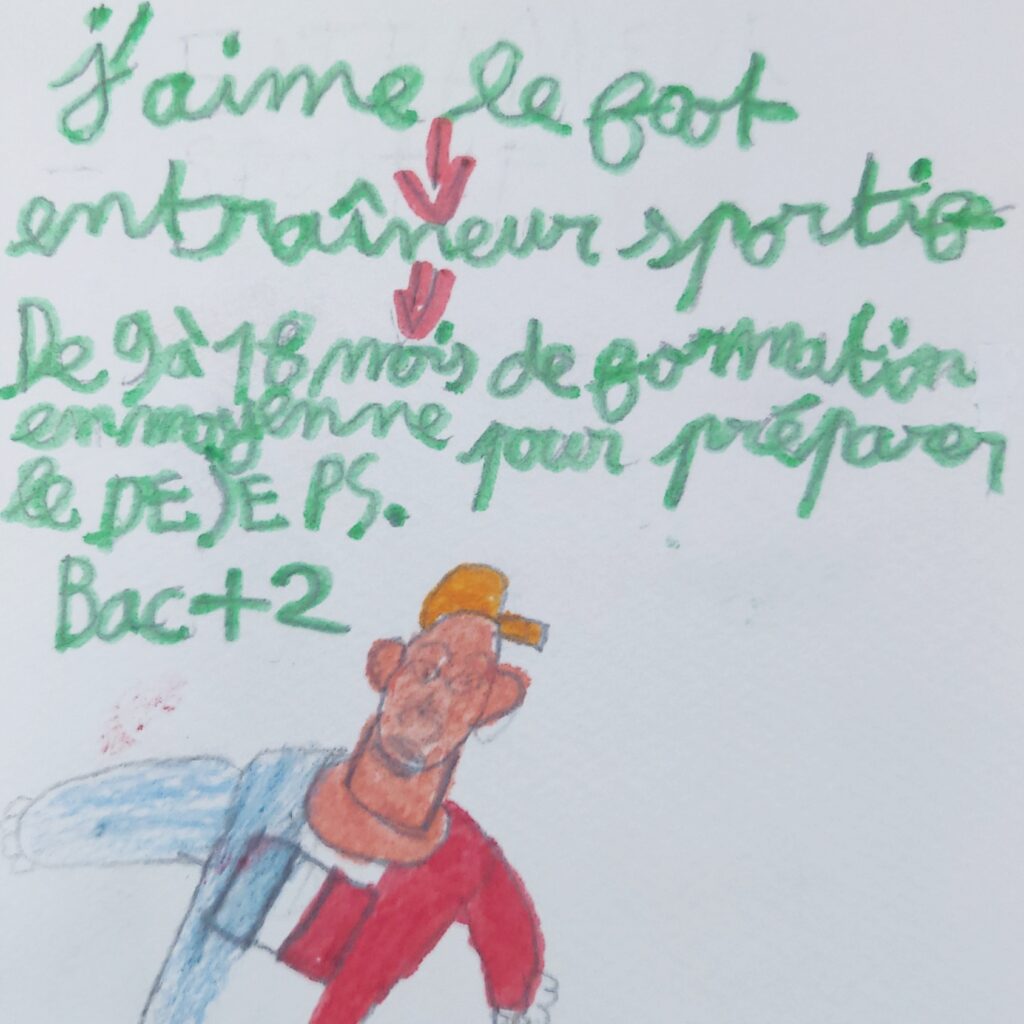 j'aime le foot
entraîneur sportif
De 9 à 18 mois de formation
en moyenne pour préparer
le DEJEPS.
Bac+2